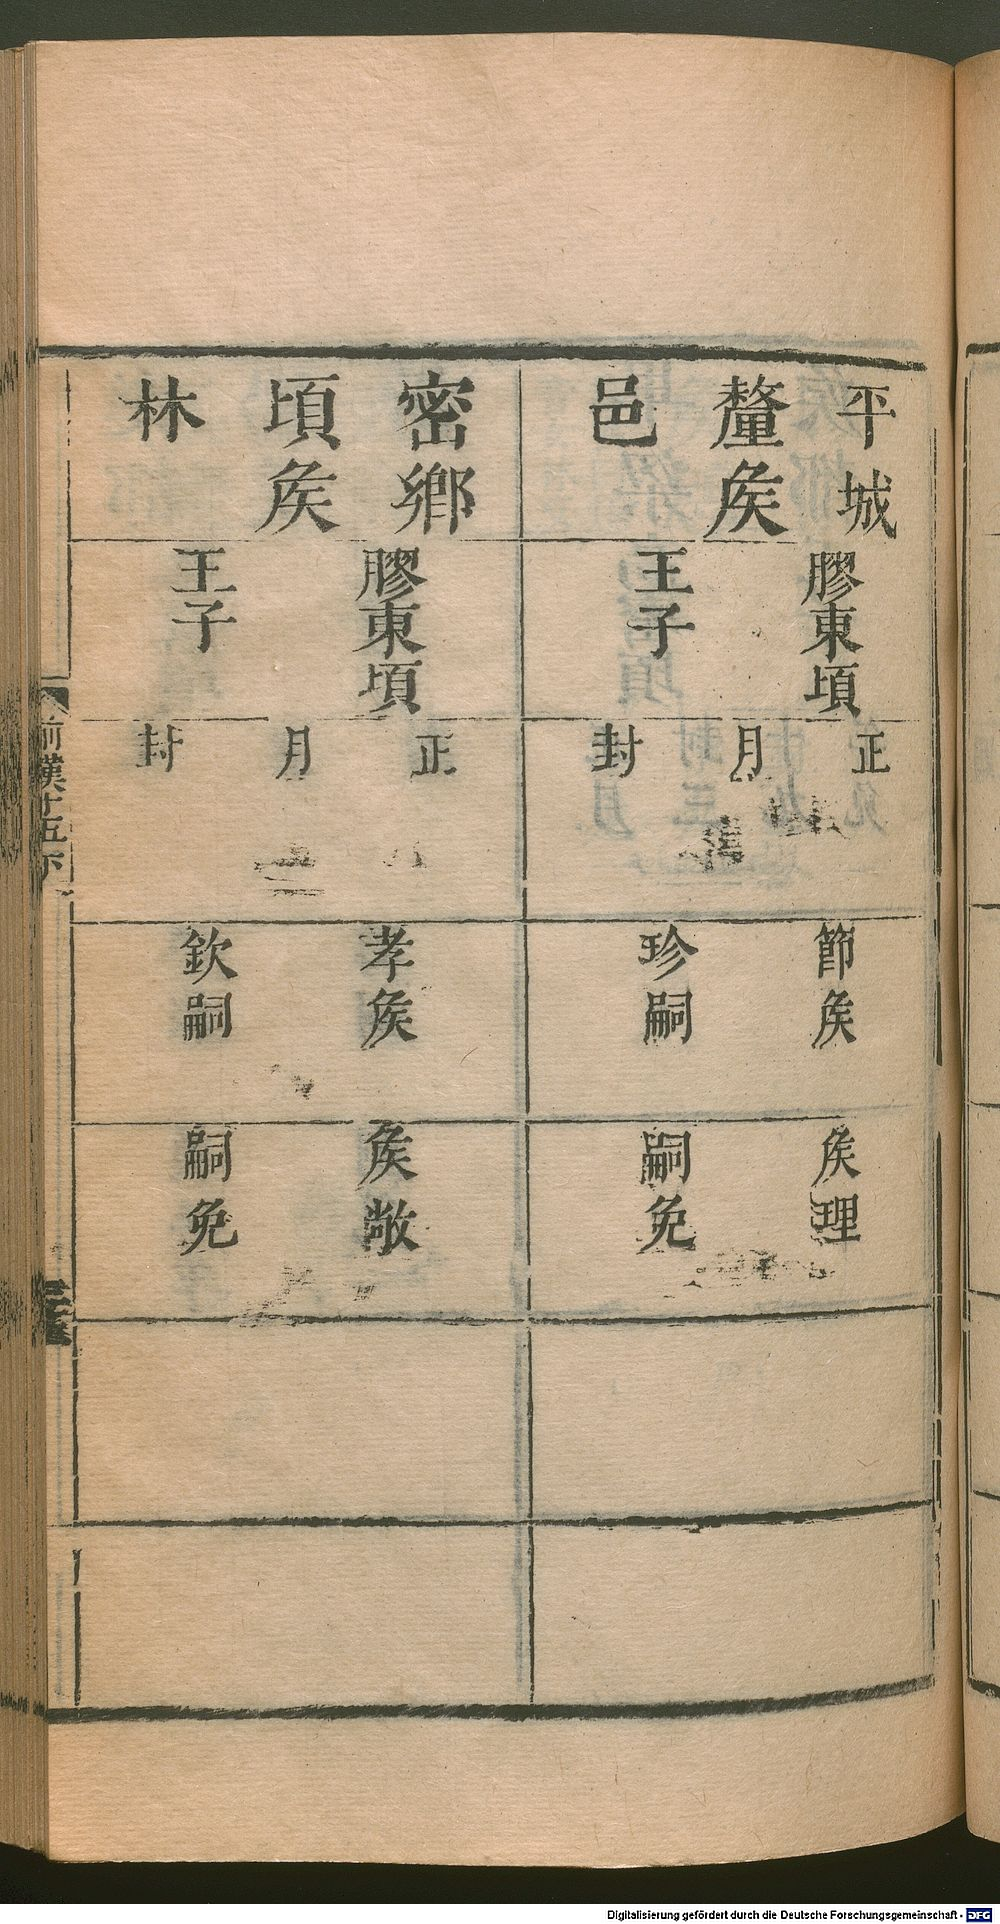 平城
釐矦
邑
膠東頃
王子
正
月
封
節矦
珍嗣
矦理
嗣免
密鄉
頃矦
林
膠東頃
王子
正
月
封
孝矦
欽嗣
矦敞
嗣免
前漢十五下
Digitalisierung gefördert durch die Deutsche Forschungsgemeinschaft - DFG